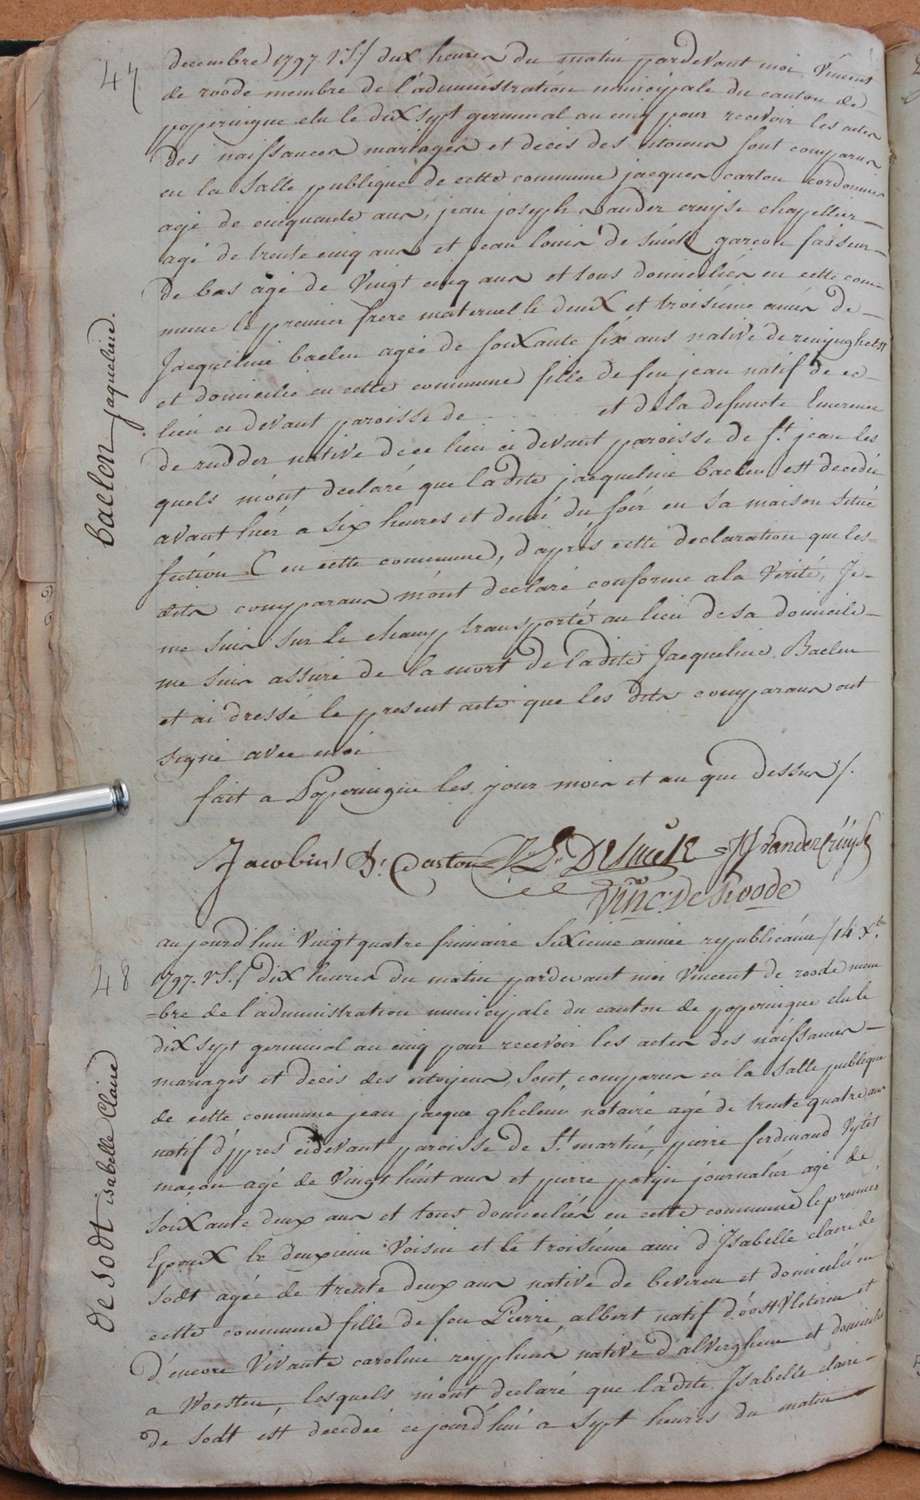 47
decembre 1797 v.S./ dix heures du matin pardevant moi Vincent
de roode membre de l'administration municipale du canton de
poperingue elu le dix sept germinal an cinq pour recevoir les actes
des naissances mariages et décès des citoiens sont comparus
en la salle publique de cette commune jacques carton cordonnier
agé de cinquante ans, jean joseph vander cruyse chapellier
agé de trente cinq ans et jean louis de smeele garçon faiseur
de bas agé de vingt cinq ans et tous domiciliés en cette com-
mune le premier frere maternel le deux et troisième amis de
Jacqueline baelen agée de soixante six ans native de reninghelst
et domiciliée en cette commune fille de feu jean natif de ce
lieu ci devant paroisse de et de la defuncte Emerence
de rudder native de ce lieu ci devant paroisse de St. jean les
quels m'ont declaré que ladite jacqueline baelen est decedée
avant hier a six heures et demi du soir en sa maison situé
section C en cette commune, d'après cette declaration que les
dits comparans m'ont declaré conforme a la verité, Je
me suis sur le champ transporté au lieu de sa domicile
me suis assuré de la mort de ladite Jacqueline Baelen
et ai dressé le present acte que les dits comparans ont
signé avec moi
fait a Poperingue les jour mois et an que dessus /.
baelen jaqueline.
Jacobus B. Carton JL: DeSmeele JJ Vandercruyse
Vinc: De Roode
48
aujourd'hui vingt quatre frimaire sixieme année republicaine /14 Xbre
1797. v.S./ dix heures du matin pardevant moi Vincent de roode mem
-bre de l'administration municipale du canton de poperingue elu le
dix sept germinal an cinq pour recevoir les actes des naissances
mariages et decès des citoyens, sont comparus en la salle publique
de cette commune jean jacque ghelein notaire agé de trente quatre ans
natif d'ypres cidevant paroisse de St. martin, pierre ferdinand
maçon agé de vingt huit ans et pierre patyn journalier agé de
soixante deux ans et tous domiciliés en cette commune le premier
Epoux le deuxieme Voisin et le troisième ami d'Isabelle claire de
sodt agée de trente deux ans native de beveren et domiciliée en
cette commune fille de feu Pierre albert natif d'oostvleteren et
d'encore vivante caroline native d'alveringhem et domiciliée
a Woesten, lesquels m'ont declaré que ladite Isabelle claire
de sodt est decedée cejourd'hui a sept heures du matin
de sodt isabelle Claire